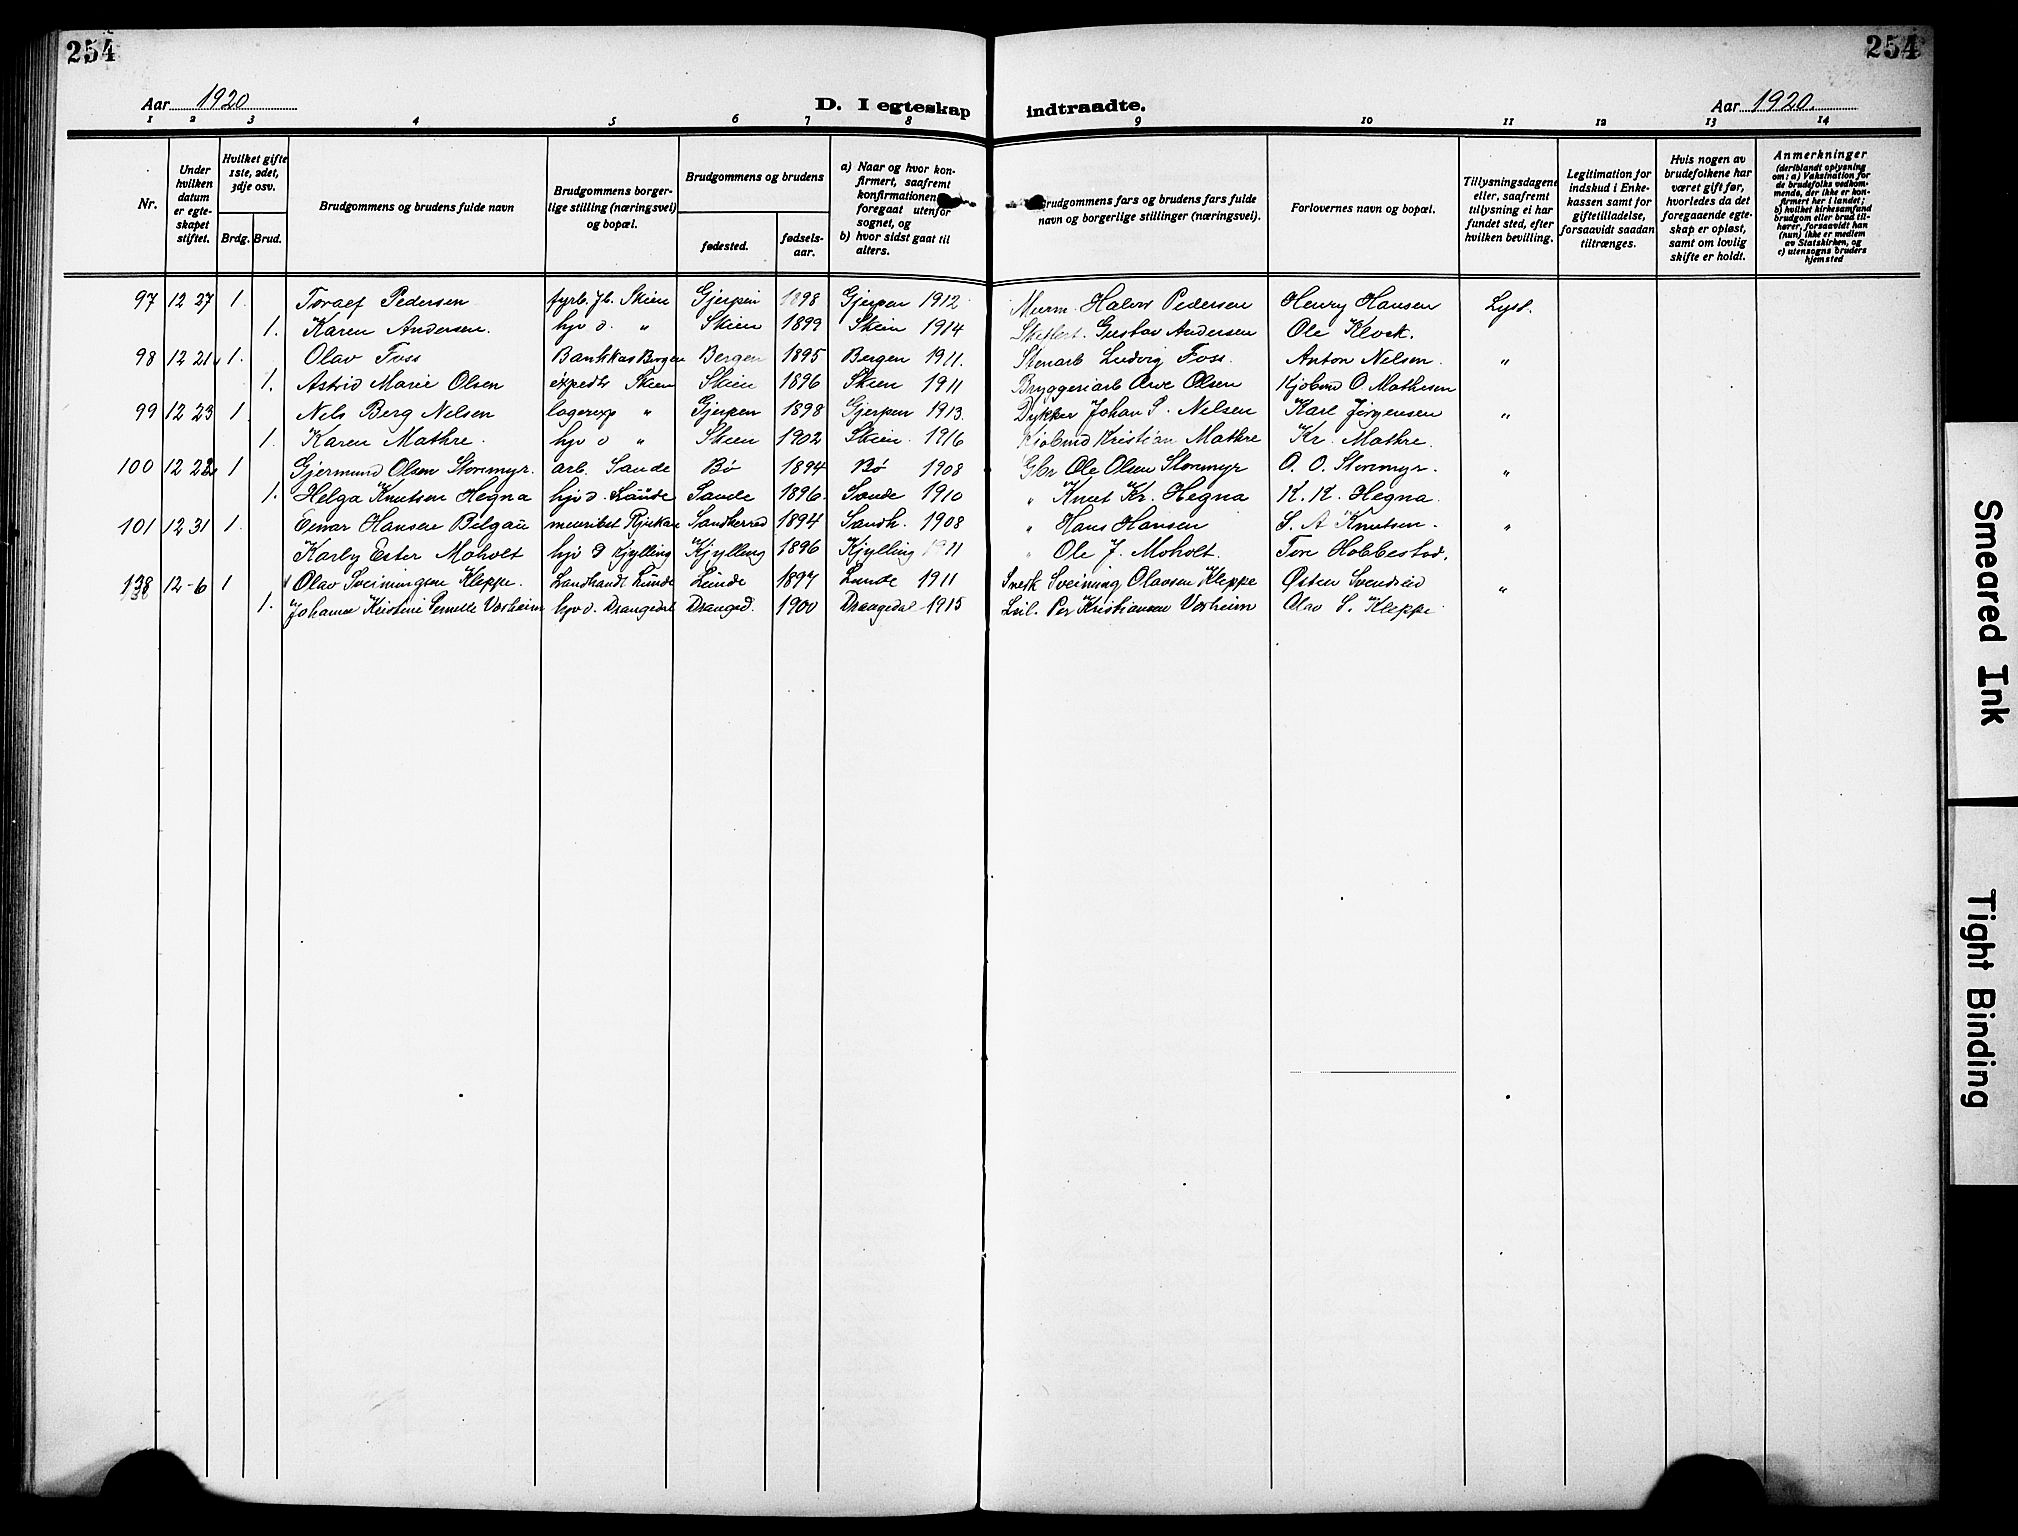 254 254
Aar 1920 D. I egteskap indtraadte. Aar 1920
1 2 3 4 5 6 7 8 9 10 11 12 13 14
Nr.
Under hvilken datum er egteskapet stiftet.
Hvilket gifte 1ste, 2det, 3dje osv.
Brdg. Brud.
Brudgommens og brudens fulde navn
Brudgommens borgerlige stilling (næringsvei) og bopæl.
Brudgommens og brudens
fødested. fødselsaar.
a) Naar og hvor konfirmert, saafremt konfirmationen foregaat utenfor sognet, og
b) hvor sidst gaat til alters.
Brudgommens fars og brudens fars fulde navn og borgerlige stillinger (næringsvei).
Forlovernes navn og bopæl.
Tillysningsdagene eller, saafremt tillysning ei har fundet sted, efter hvilken bevilling.
Legitimation for indskud i Enkekassen samt for giftetilladelse, forsaavidt saadan tiltrænges.
Hvis nogen av brudefolkene har været gift før, hvorledes da det foregaaende egteskap er opløst, samt om lovlig skifte er holdt.
Anmerkninger
(deriblandt oplysning om: a) Vaksination for de brudefolks vedkommende, der ikke er konfirmert her i landet;
b) hvilket kirkesamfund brudgom eller brud tilhører, forsaavidt han (hun) ikke er medlem av Statskirken, og
c) utensogns bruders hjemsted
97 12 27 1. Toralf Pedersen fyrb. Jb. Skien Gjerpen 1898 Gjerpen 1912 Murm. Halvor Pedersen Henry Hansen Lyst.
1. Karen Andersen. hjv d. " Skien 1899 Skien 1914 Gustav Andersen Ole Klock.
98 12 21 1. Olav Foss Bankkas Bergen Bergen 1895 Bergen 1911. Stenarb Ludvig Foss. Anton Nelsen. "
1. Astrid Marie Olsen expedtr Skien Skien 1896 Skien 1911 Bryggeriarb Arve Olsen Kjøbmd O. Mathesen
99 12 23 1 Nels Berg Nelsen lagerexp " Gjerpen 1898 Gjerpen 1913. Dykker Johan P. Nelsen Karl Jørgensen "
1. Karen Mathre. hjv d " Skien 1902 Skien. 1916 Kjøbmd Kristian Mathre Kr. Mathre.
100 12 22 1 Gjermund Olsen Storemyr. arb. Sande Bø 1894 Bø 1908 Gbr Ole Olsen Storemyr O. O. Storemyr. "
1. Helga Knutsen Hegna hjv d. Sande Sande 1896. Sande 1910 " Knut Kr. Hegna K. K. Hegna.
101 12 31 1. Einar Hansen Bolgau Rjukan Sandherred 1894 Sandh. 1908 " Hans Hansen S. A Knutsen. "
Karly Ester Moholt hjv d Kjylling Kjylling 1896 Kjylling 1911 " Ole J. Moholt. Tore Hobbestad.
138 12-6 1 Olav Sveinungsen Kleppe. Landhandl Lunde Lunde 1897 Lunde 1911 Snek Sveinung Olavsen Kleppe Østen Svendsen "
1. Johanne Kristine Pernelle Vorheim hjv d. Drangedal Dranged. 1900 Drangedal 1915 Lsil. Per Kristiansen Vorheim Olav S. Kleppe
Smeared Ink
Tight Binding